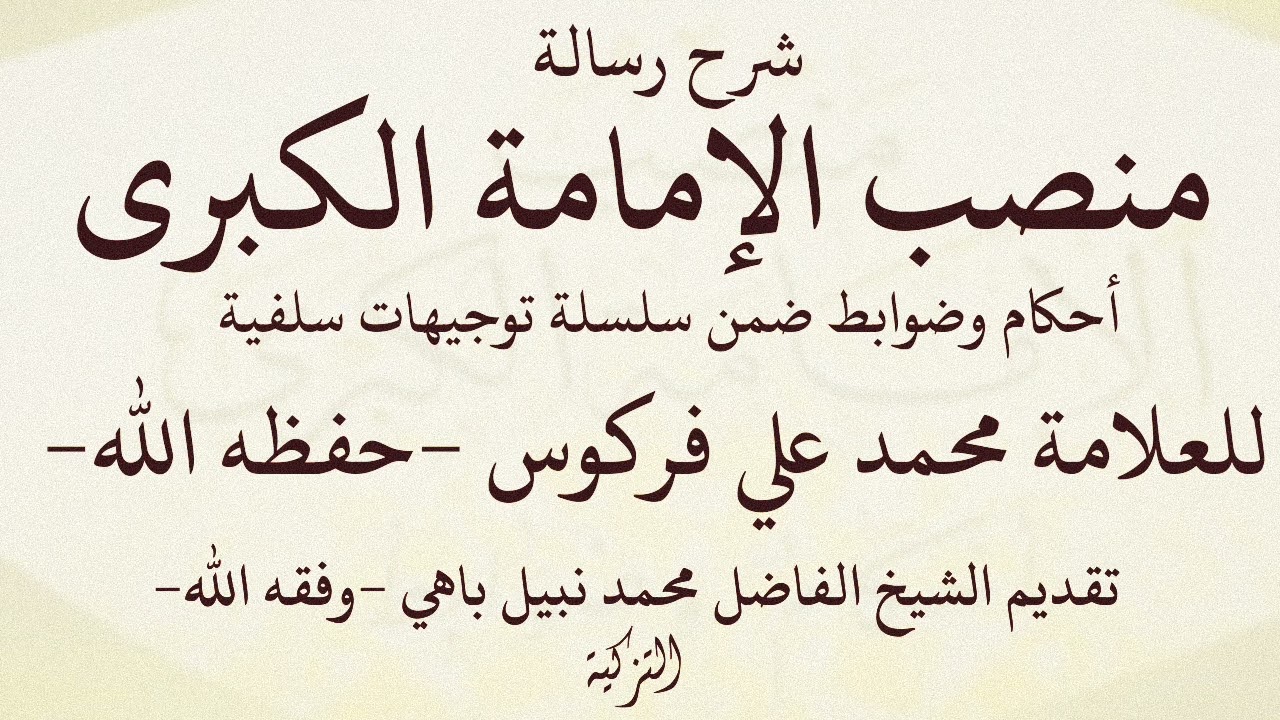 شرح رسالة
منصب الإمامة الكبرى
أحكام وضوابط ضمن سلسلة توجيهات سلفية
للعلامة محمد علي فركوس -حفظه الله-
تقديم الشيخ الفاضل محمد نبيل باهي -وفقه الله-
التزكية